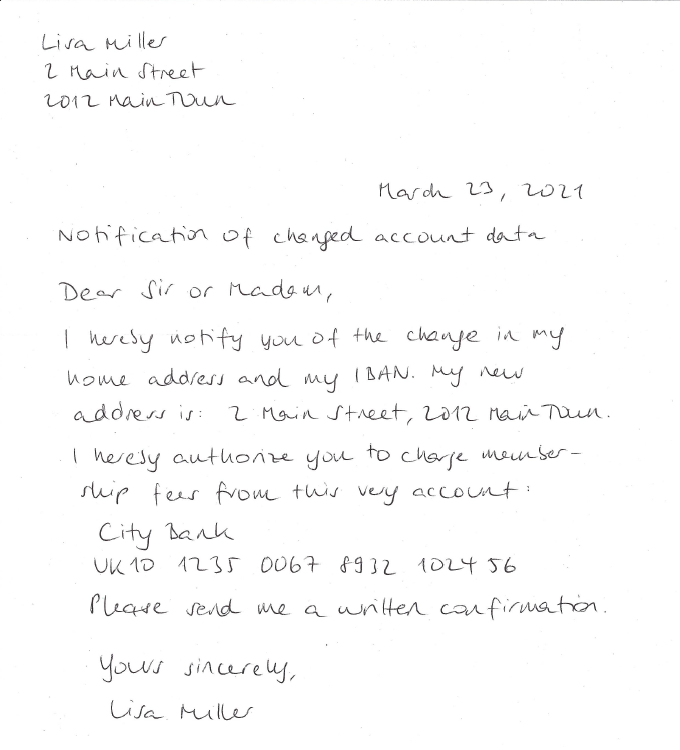 Lisa Miller
2 Main Street
2012 Main Town
March 23, 2021
Notification of changed account data
Dear Sir or Madam,
I hereby notify you of the change in my
home address and my IBAN. My new
address is: 2 Main Street, 2012 Main Town.
I hereby authorize you to charge member-
ship fees from this very account:
City Bank
UK10 1235 0067 8932 1024 56
Please send me a written confirmation.
Yours sincerely,
Lisa Miller